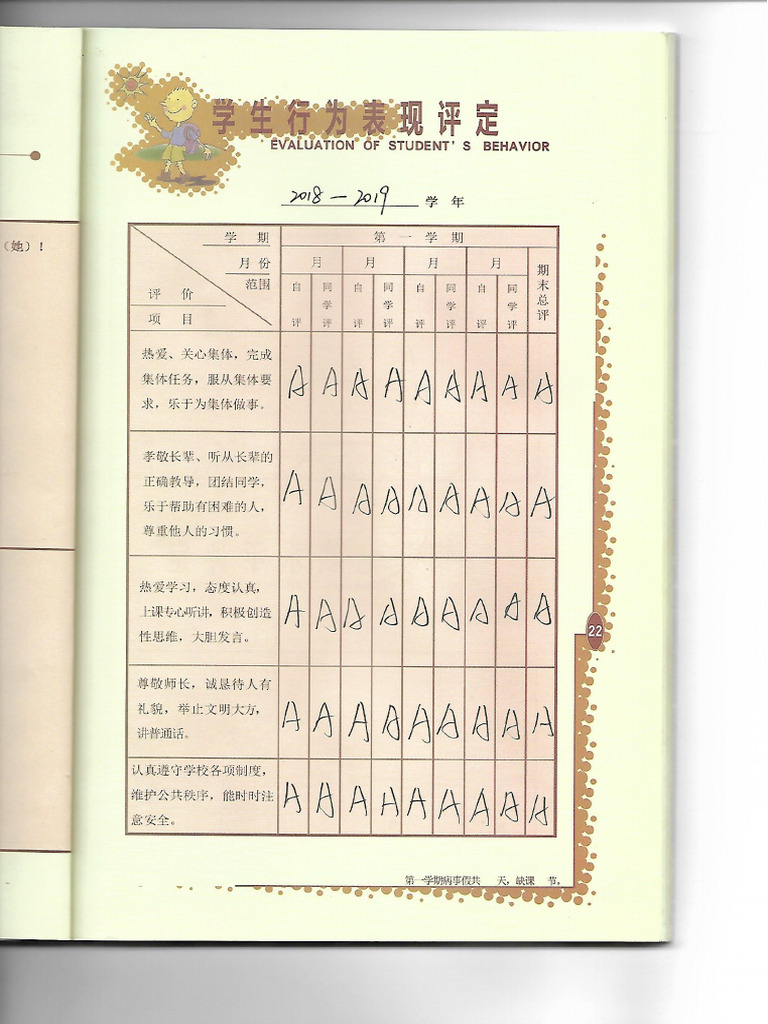 学生行为表现评定
EVALUATION OF STUDENT'S BEHAVIOR
2018—2019 学年
（她）！
学 期
第 一 学 期
月份
月 月 月 月
期末总评
范围
自评 同学评 自评 同学评 自评 同学评 自评 同学评
评 价
项 目
热爱、关心集体，完成
集体任务，服从集体要
求，乐于为集体做事。
A A A A A A A A A
孝敬长辈、听从长辈的
正确教导，团结同学，
乐于帮助有困难的人，
尊重他人的习惯。
A A A A A A A A A
热爱学习，态度认真，
上课专心听讲，积极创造
性思维，大胆发言。
A A A A A A A A A
22
尊敬师长，诚恳待人有
礼貌，举止文明大方，
讲普通话。
A A A A A A A A A
认真遵守学校各项制度，
维护公共秩序，能时时注
意安全。
A A A A A A A A A
第一学期病事假共 天，缺课 节。